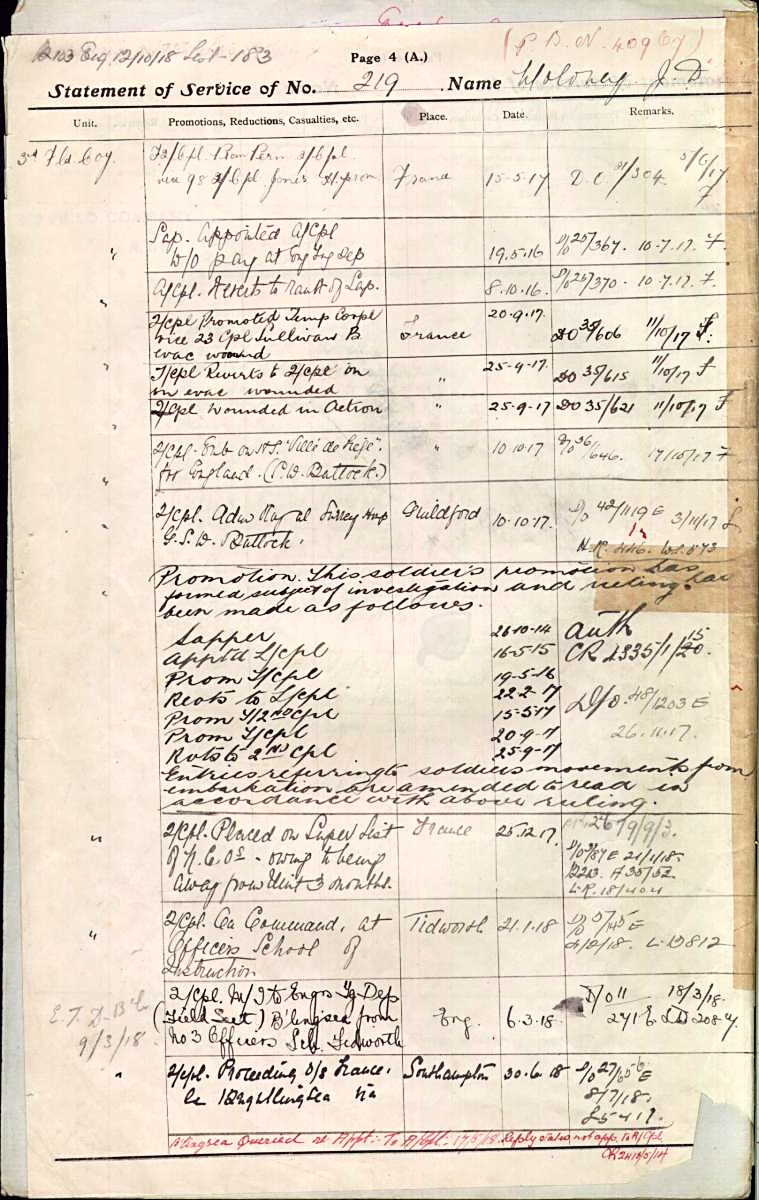 B103 Eng 12/10/18 List 183
(P.B.N. 40967)
Page 4 (A.)
Statement of Service of No. 219 Name Moloney J. D.
Unit. Promotions, Reductions, Casualties, etc. Place. Date. Remarks.
3rd Fld Coy.
vice 98 2/Cpl Jones France 15-5-17 D.O. 31/304. 5/6/17
F
Sap. Appointed A/Cpl
W/o pay at Eng Trg Dep 19.5.16 D/O 25/367. 10-7.17. F
A/Cpl. Reverts to rank of Sap. 8.10.16. D/O 25/370 - 10-7.17. F.
2/Cpl Promoted Temp Corpl 20-9-17.
vice 23 Cpl Sullivan B France DO 35/606 11/10/17 F.
evac wound
T/Cpl Reverts to 2/Cpl on " 25-9-17. DO 35/615 11/10/17 F
on evac wounded
2/Cpl Wounded in Action " 25-9-17 DO 35/621 11/10/17 F
2/Cpl. Emb on H.S. "Ville de Liege". " 10.10.17 D/O 36/646. 17/10/17 F
for England. (S.W. Buttock.)
2/Cpl. Adm Royal Surrey Hosp Guildford 10-10-17. D/O 42/1119 E 3/11/17 L
G.S.W. Buttock.
H.R. 446. W5873
Promotion. This soldier's promotion has
formed subject of investigation and ruling has
been made as follows.
Sapper 26-10-14 Auth
Apptd L/Cpl 16-5-15 CR 2335/1/15
Prom T/Cpl 19-5-16 20.
Reverts to L/Cpl. 22-2-17 D/o. 48/1203 E
Prom T/2nd Cpl 15-5-17 26.11.17.
Prom T/Cpl 20-9-17
Rvts to 2nd Cpl 25-9-17
Entries referring to soldiers movements from
embarkation are amended to read in
accordance with above ruling.
" 2/Cpl. Placed on Super List France 25.12.17.
of N.C.Os - owing to being D/O 5/87 E 21/1/18.
away from Unit 3 months. B213. A 35/52
L.R. 18/404
" 2/Cpl. On Command, at Tidworth 21.1.18 D/O 5/145 E
Officers School of 4/2/18. L.D812
Instruction
E. T. D. B'L 2/Cpl. M/I to Engrs Tg Dep D/o 11 18/3/18.
9/3/18. (Field Sect.) B'lingsea from Eng. 6.3.18. 271 E
No 3 Officers Sch. Tidworth
" 2/Cpl. Proceeding O/S France. Southampton 30.6.18 D/O 27/656 E
ex Brightlingsea via 8/7/18.
L5417.
B'lingsea Queried re Appt:- To A/Cpl: 17/5/18. Reply states not app. to A/Cpl.